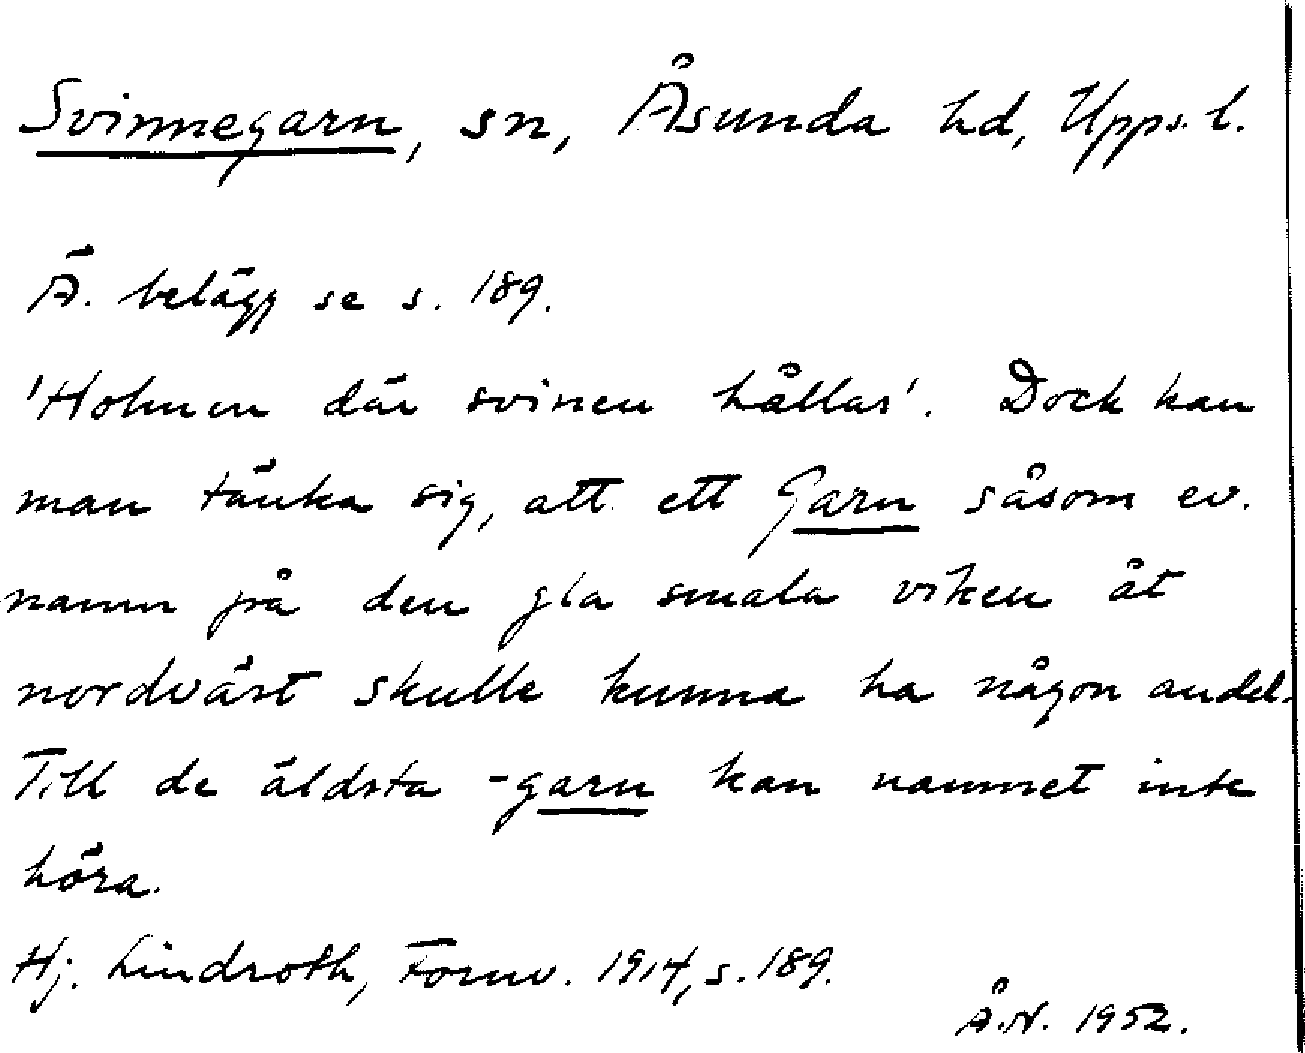 Svinnegarn, sn, Åsunda hd, Upps. l.
Ä. belägg se s. 189.
'Holmen där svinen hållas'. Dock kan
man tänka sig, att ett Garn såsom ev.
namn på den gla smala viken åt
nordväst skulle kunna ha någon andel.
Till de äldsta -garn kan namnet inte
höra.
Hj. Lindroth, Fornv. 1914, s. 189.
Å.N. 1952.